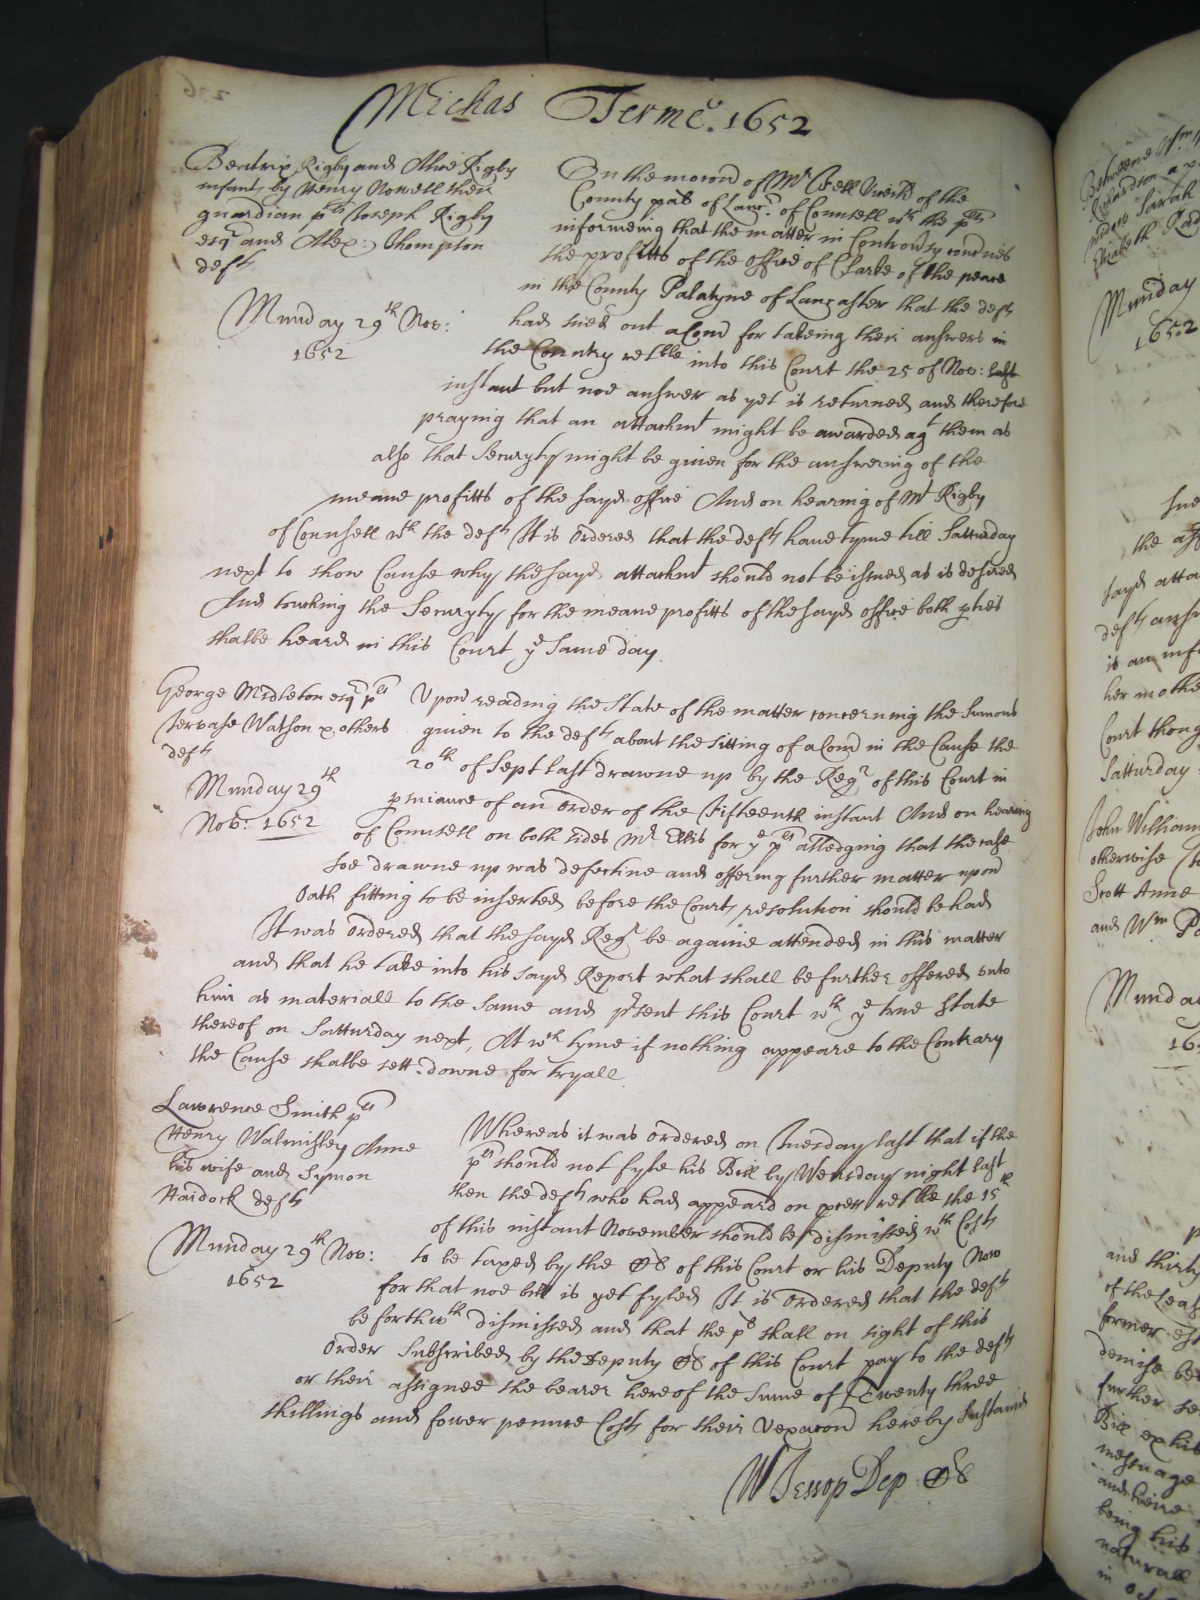 Michas Terme. 1652
Beatrix Rigby and Alice Rigby
infants by Henry Nowell their
guardian plts Joseph Rigby
esqr and Alex: Thompson
defts
Munday 29th Nov:
1652
On the mocond of Mr Fell Viceth of the
County palt of Lancr. of Counsell wth the plts
informeing that the matter in Controvsy concnes
the profitts of the office of Clarke of the peace
in the County Palatyne of Lancaster that the defts
had sued out a Comd for takeing their answers in
the Country retble into this Court the 25 of Nov: last
instant but noe answer as yet is returned and therefore
praying that an attachmt might be awarded agt them as
also that Securyty might be given for the answering of the
meane profitts of the sayd office And on hearing of Mr Rigby
of Counsell wth the defts It is Ordered that the defts have tyme till Satturday
next to show Cause why the sayd attachmt should not be issued as is desired
And touching the Securyty for the meane profitts of the sayd office both pties
shalbe heard in this Court ye same day.
George Midleton esqr plt
Jervase Watson & others
defts
Munday 29th
Nov: 1652
Upon reading the State of the matter concerning the Sumons
given to the defts about the sitting of a Comd in the Cause the
20th of Sept last drawne up by the Regr of this Court in
psuiance of an Order of the Fifteenth instant And on hearing
of Counsell on both sides Mr Ellis for ye plt alledging that the case
soe drawne up was defective and offering further matter upon
Oath fitting to be inserted before the Courts resolution should be had
It was Ordered that the sayd Regr be againe attended in this matter
and that he take into his sayd Report what shall be further offered unto
him as materiall to the same and psent this Court wth ye true State
thereof on Satturday next, At wch tyme if nothing appeare to the Contrary
the Cause shalbe sett downe for tryall
Lawrence Smith plt
Henry Walmisley Anne
his wife and Symon
Haidock defts
Munday 29th Nov:
1652
Whereas it was Ordered on Tuesday last that if the
plt should not fyle his Bill by Wensday night last
then the defts who had appeard on pces retble the 15th
of this instant November should be dismissed wth Costs
to be taxed by the of this Court or his Deputy Now
for that noe bill is yet fyled It is Ordered that the defts
be forthwth dismissed and that the plt shall on sight of this
Order Subscribed by the Deputy of this Court pay to the defts
or their assignee the bearer hereof the Sume of Twenty three
shillings and fower pennce Costs for their Vexacon hereby Sustaind
W Jessop Dep
Munday
1652
the
sayd atta
is an inf
her mothe
Court thoug
Satturday
John William
otherwise
Scott Anne
and Wm
Munday
and thirty
of the Leas
former
demise
further
Bill exhib
message
being his
naturall